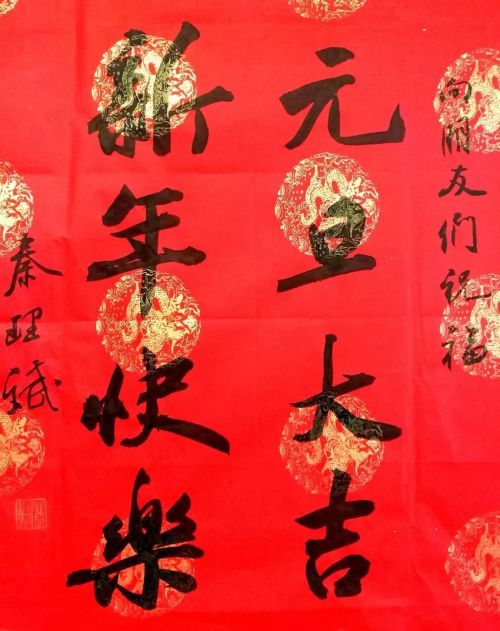 向朋友们祝福
元旦大吉
新年快樂
秦理斌